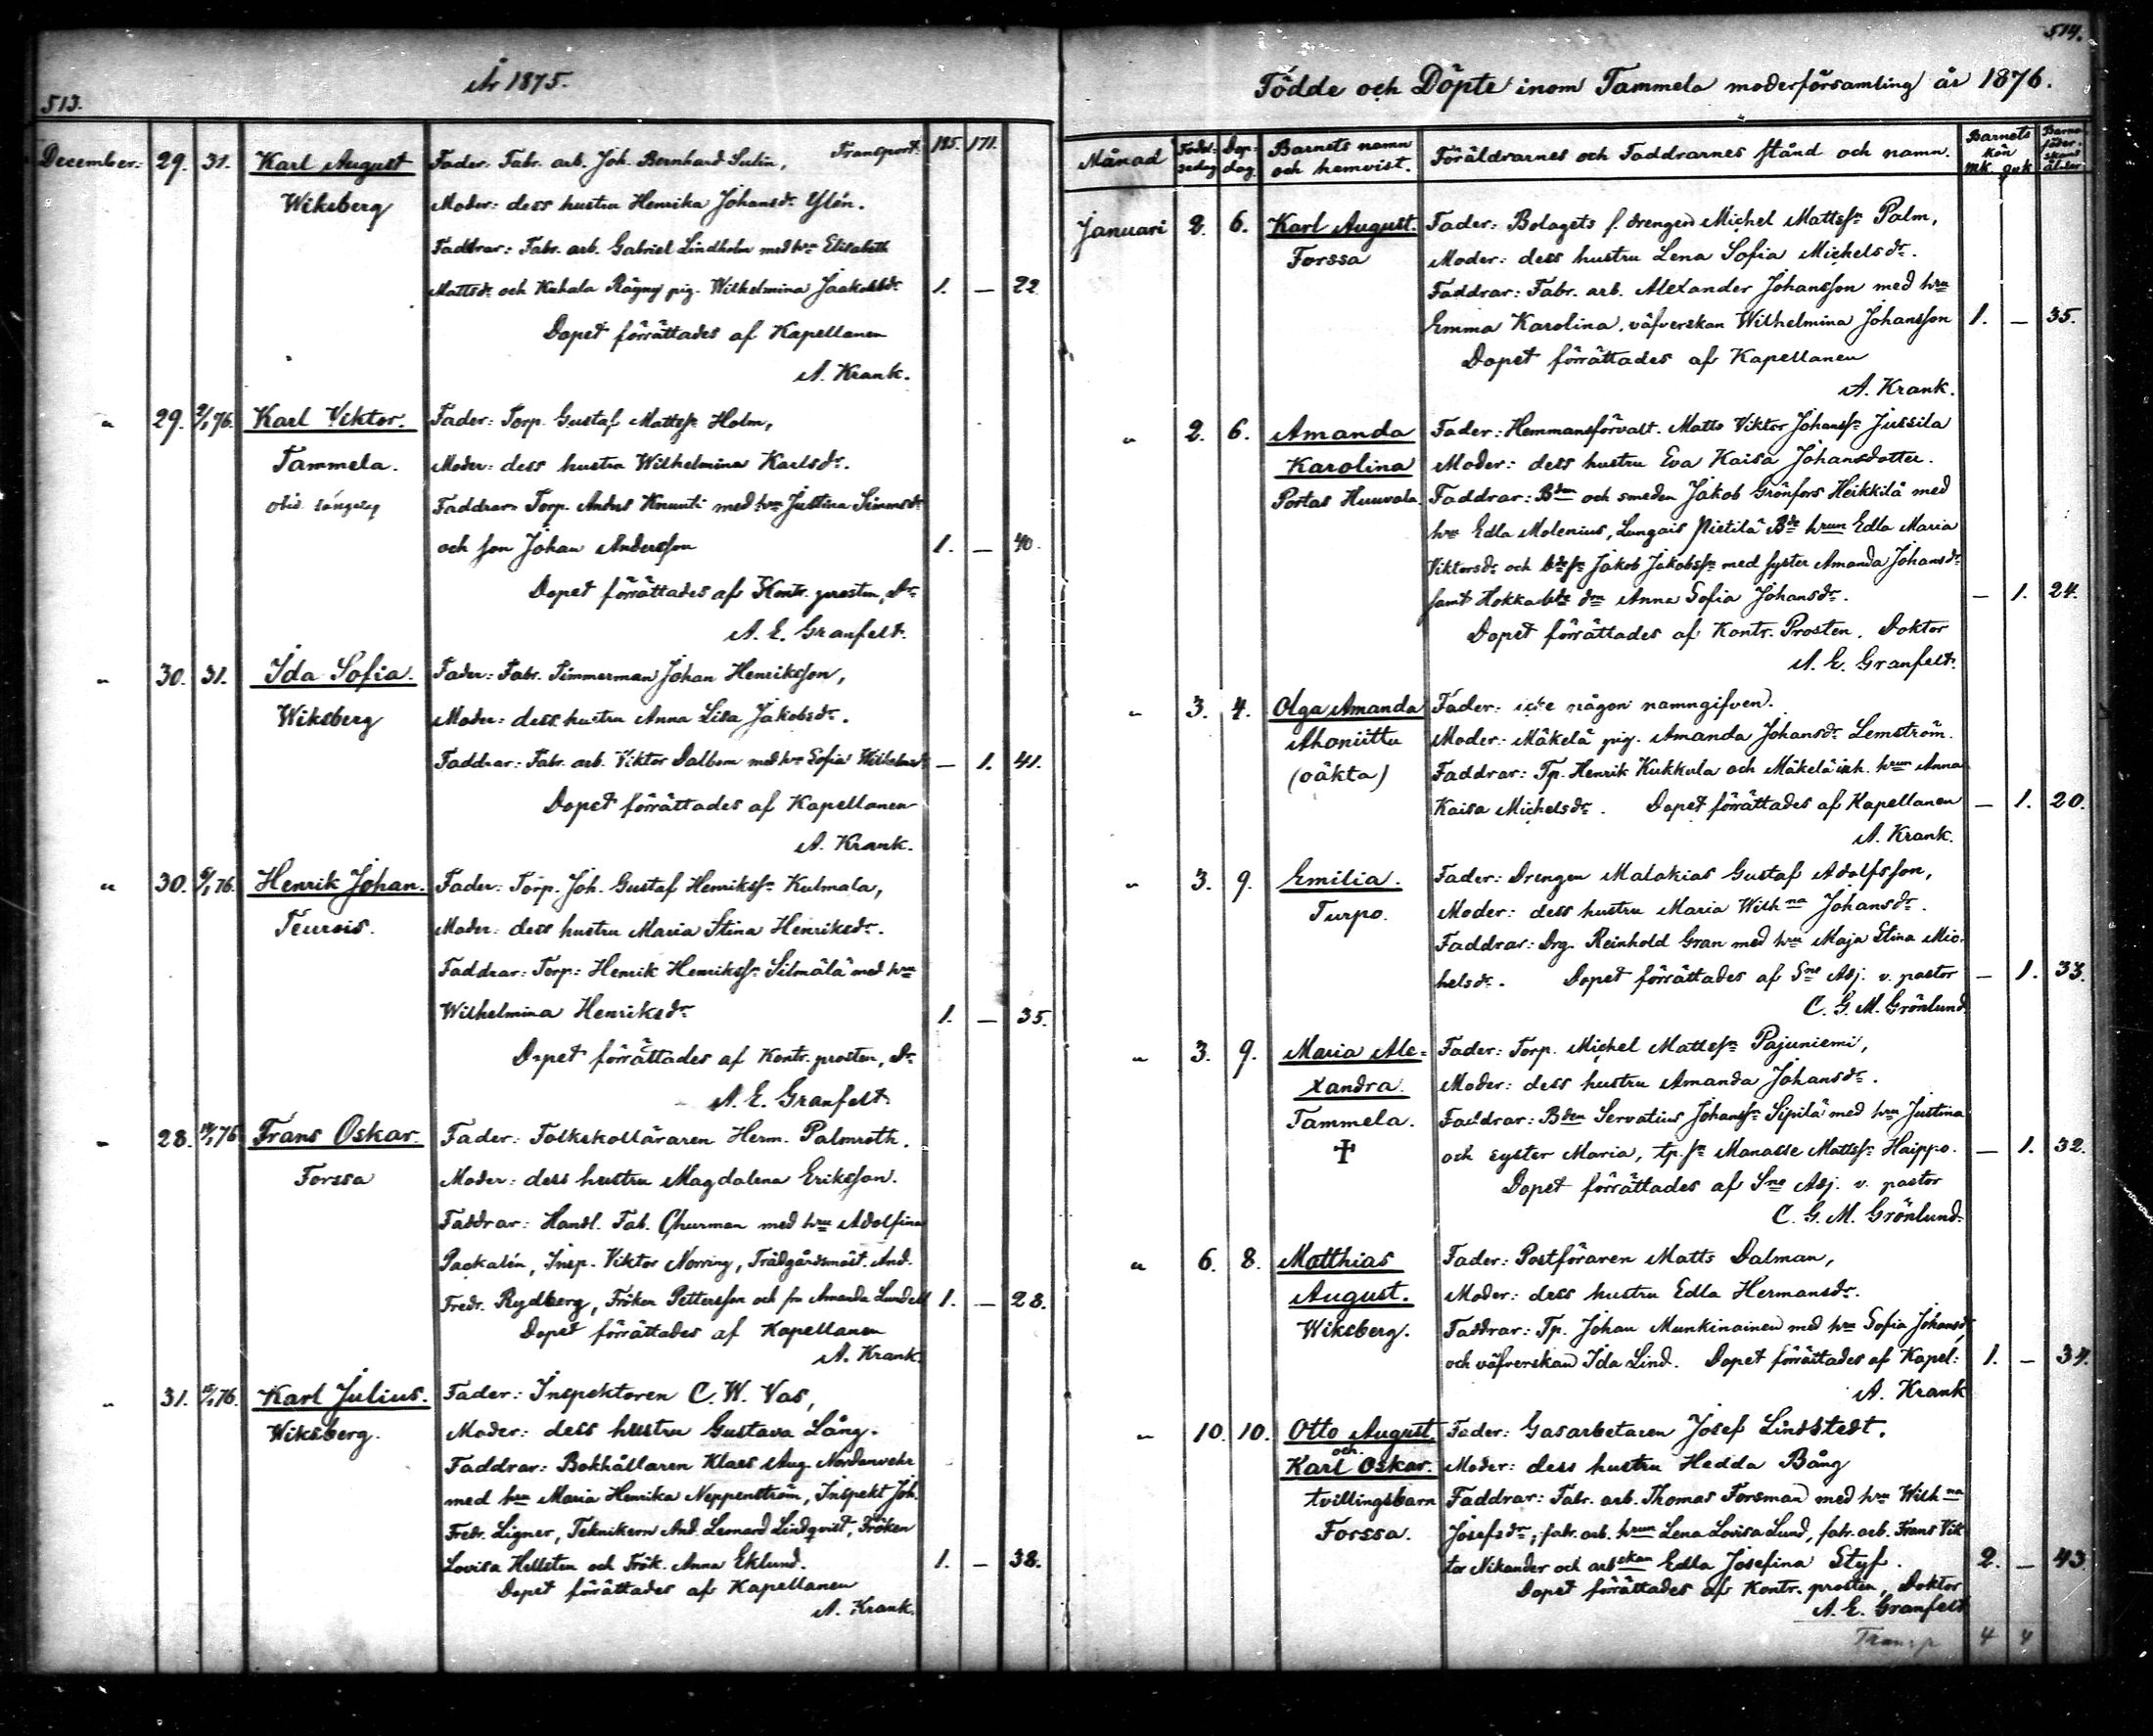 513.
År 1875.
December. 29. 31. Karl August Fader: Fabr. arb. Joh. Bernhard Sulin, Transport. 185. 171.
Wiksberg Moder: dess hustru Henrika Johansdr. Ylén.
Faddrar: Fabr. arb. Gabriel Lindholm med hru Elisabeth
Mattsdr. och Kuhala pig. Wilhelmina Jaakobsdr. 1. — 22.
Dopet förrättades af Kapellanen
A. Krank.
" 29. 2/1 76. Karl Viktor. Fader: Torp. Gustaf Mattss. Holm,
Tammela. Moder: dess hustru Wilhelmina Karlsdr.
Faddrar: Torp. Anders Knuuti med hru Justina Simonsdr
och son Johan Andersson 1. — 40.
Dopet förrättades af Kontr. prosten, Dr.
A. E. Granfelt.
" 30. 31. Ida Sofia. Fader: Fabr. Timmerman Johan Henriksson,
Wiksberg Moder: dess hustru Anna Lisa Jakobsdr.
Faddrar: Fabr. arb. Viktor Dalbom med hru Sofia Wilhelmsdr — 1. 41.
Dopet förrättades af Kapellanen
A. Krank.
" 30. 6/1 76. Henrik Johan. Fader: Torp. Joh. Gustaf Henrikss. Kulmala,
Teurois. Moder: dess hustru Maria Stina Henriksdr.
Faddrar: Torp: Henrik Henrikss. Silmälä med hru
Wilhelmina Henriksdr. 1. — 35.
Dopet förrättades af Kontr. prosten, Dr.
A. E. Granfelt.
" 28. 76. Frans Oskar. Fader: Folkskolläraren Herm. Palmroth.
Forssa Moder: dess hustru Magdalena Eriksson.
Faddrar: Handl. Fab. Öhurman med hru Adolfina
Packalén, Insp. Viktor Norring, Trädgårdsmäst. And.
Fredr. Rydberg, Fröken Pettersson och fru Amanda Lundell 1. — 28.
Dopet förrättades af Kapellanen
A. Krank.
" 31. 76. Karl Julius. Fader: Inspektoren C. W. Vas,
Wiksberg. Moder: dess hustru Gustava Lång.
Faddrar: Bokhållaren Klaes Aug. Nordenvehr
med hru Maria Henrika Neppenström, Inspekt Joh.
Fredr. Ligner, Teknikern And. Leonard Lindqvist, Fröken
Lovisa Hellsten och Frök. Anna Eklund. 1. — 38.
Dopet förrättades af Kapellanen
A. Krank.
514.
Födde och Döpte inom Tammela moderförsamling år 1876.
Månad Födelsedag Dopdag. Barnets namn och hemvist. Föräldrarnes och Faddrarnes stånd och namn. Barnets kön mk. qvk. Barnaföderskans ålder
Januari 2. 6. Karl August. Fader: Bolagets f. drengen Michel Mattss. Palm,
Forssa Moder: dess hustru Lena Sofia Michelsdr.
Faddrar: Fabr. arb. Alexander Johansson med hru
Emma Karolina, väfverskan Wilhelmina Johansson 1. — 35.
Dopet förrättades af Kapellanen
A. Krank.
" 2. 6. Amanda Fader: Hemmansförvalt. Matts Viktor Johanss. Jussila
Karolina Moder: dess hustru Eva Kaisa Johansdotter.
Portas Huuvala. Faddrar: Bden och smeden Jakob Grönfors Heikkilä med
hru Edla Molenius, Lungais Pietilä Bde hrun Edla Maria
Viktorsdr. och bdess. Jakob Jakobss. med syster Amanda Johansdr.
samt Hokka bde drn Anna Sofia Johansdr. — 1. 24.
Dopet förrättades af Kontr. Prosten. Doktor
A. E. Granfelt.
" 3. 4. Olga Amanda Fader: icke någon namngifven.
Ahoniittu Moder: Mäkelä pig. Amanda Johansdr. Lemström.
(oäkta) Faddrar: Tp. Henrik Kukkula och Mäkelä inh. hrun Anna
Kaisa Michelsdr. Dopet förrättades af Kapellanen — 1. 20.
A. Krank.
" 3. 9. Emilia. Fader: Drengen Malakias Gustaf Adolfsson,
Turpo. Moder: dess hustru Maria Wilhna Johansdr.
Faddrar: Drg. Reinhold Gran med hru Maja Stina Mic-
helsdr. Dopet förrättades af Sne Adj. v. pastor — 1. 33.
C. G. M. Grönlund.
" 3. 9. Maria Ale- Fader: Torp. Michel Mattss. Pajuniemi,
xandra. Moder: dess hustru Amanda Johansdr.
Tammela. Faddrar: Bden Servatius Johanss. Sipilä med hru Justina
✝ och syster Maria, tp. sn Manasse Mattss. Haippo. — 1. 32.
Dopet förrättades af Sne Adj. v. pastor
C. G. M. Grönlund.
" 6. 8. Matthias Fader: Postföraren Matts Dalman,
August. Moder: dess hustru Edla Hermansdr.
Wiksberg. Faddrar: Tp. Johan Munkinainen med hru Sofia Johansdr
och väfverskan Ida Lind. Dopet förrättades af Kapel: 1. — 34.
A. Krank
" 10. 10. Otto August. Fader: Gasarbetaren Josef Lindstedt.
och
Karl Oskar. Moder: dess hustru Hedda Bång
tvillingsbarn Faddrar: Fabr. arb. Thomas Forsman med hru Wilhna
Forssa. Josefsdr., fabr. arb. hrun Lena Lovisa Lund, fabr. arb. Frans Vik
tor Nikander och arbskan Edla Josefina Styf. 2. — 43.
Dopet förrättades af Kontr. prosten, Doktor
A. E. Granfelt
Transp 4 4